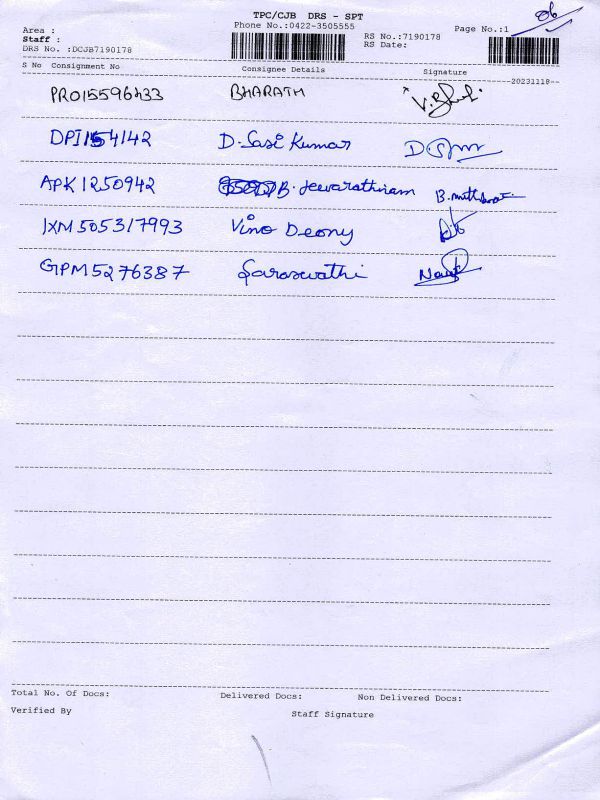 TPC/CJB DRS - SPT
06
Phone No.:0422-3505555
Page No.:1
Area :
Staff :
DRS No. :DCJB7190178
RS No.:7190178
RS Date:
S No Consignment No Consignee Details Signature
--20231118--
PRO15596433 BHARATH
DPI1541142 D. Sasi Kumar
APK1250942 B. Jeevarathinam
IXM505317993 Vino Deony
GPM5276387 Saraswathi
Total No. Of Docs: Delivered Docs: Non Delivered Docs:
Verified By Staff Signature